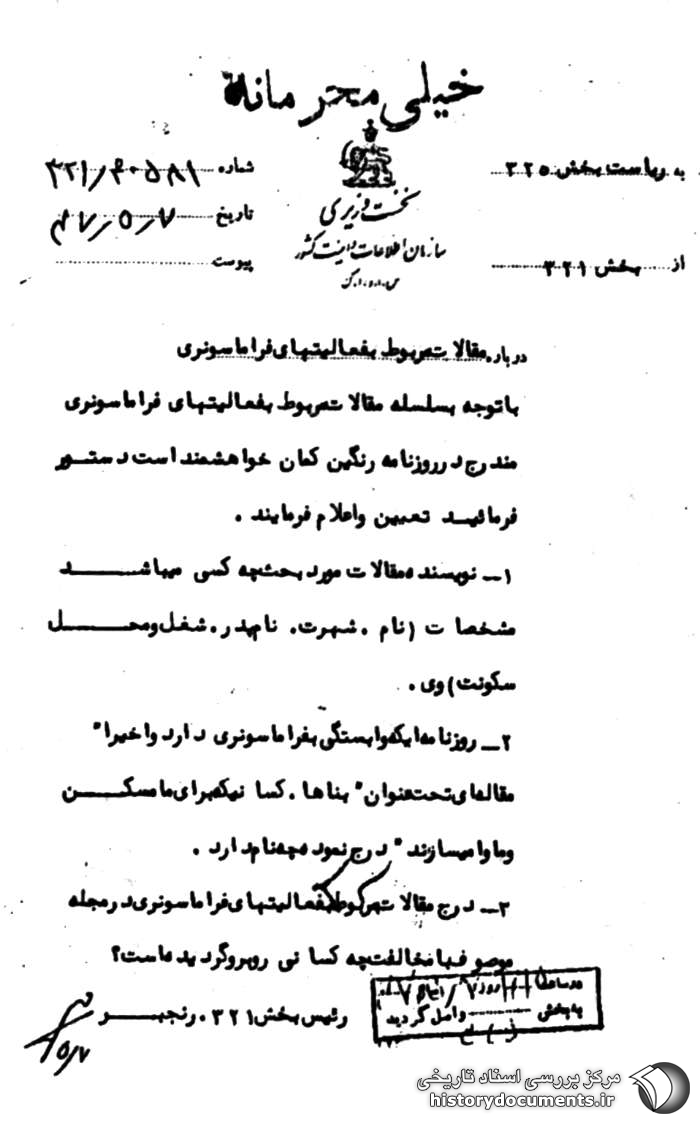 خیلی محرمانه
به ریاست بخش ۳۲۵
شماره ۳۲۱/۴۰۵۸۱
نخست وزیری
تاریخ ۴۷/۵/۷
سازمان اطلاعات و امنیت کشور
از بخش ۳۲۱
پیوست
س.ا.و.ا.ک
درباره مقالات مربوط بفعالیتهای فراماسونری
با توجه بسلسله مقالات مربوط بفعالیتهای فراماسونری
مندرج در روزنامه رنگین کمان خواهشمند است دستور
فرمائید تعیین و اعلام فرمایند .
۱ــ نویسنده مقالات مورد بحث چه کسی میباشد
مشخصات (نام . شهرت . نام پدر . شغل و محل
سکونت) وی .
۲ــ روزنامه ایکه وابستگی بفراماسونری دارد و اخیرا"
مقاله‌ای تحت عنوان " بناها . کسانیکه برای ما مسکن
و ماوا میسازند " درج نموده چه نام دارد .
۳ــ درج مقالات مربوط بفعالیتهای فراماسونری در مجله
موصوف با مخالفت چه کسانی روبرو گردیده است؟
رئیس بخش ۳۲۱ . رنجبر
در ساعت روز
به بخش واصل گردید
۵/۷
مرکز بررسی اسناد تاریخی
historydocuments.ir